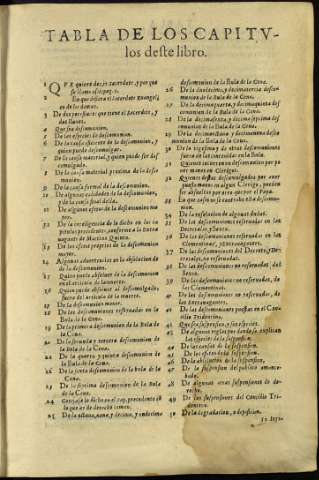 TABLA DE LOS CAPITV-
los deste libro.
1 QVE quiere dezir sacerdote, y porque
2
de los demas.
3 De dos
das llaues.
4 Que sea descomunion.
5 De las especies de descomunion.
6 De la causa eficiente de la descomunion, y
quien puede descomulgar.
7 De la causa material, y quien puede ser des
comulgado.
8 De la causa material proxima de la desco
munion.
9 De la causa formal de la descomunion.
10
y de la causa final della.
11 De algunos efetos de la descomunion me
nor.
12 De la inteligencia de lo dicho en los ca
pitulos precedentes, conforme a la Extra
uagante de Martino Quinto.
13 De los efetos proprios de la descomunion
mayor.
14 Algunas aduertencias en la absolucion de
la descomunion.
15 Quien puede absoluer de la descomunion
en el articulo de la muerte.
16 Quien puede absoluer al descomulgado,
fuera del articulo de la muerte.
17 De la descomunion menor.
18 De las descomuniones reseruadas en la
Bula de la Cena.
19 De la primera descomunion de la Bula de
la Cena.
20 De la segunda y tercera descomunion de
la Bula de la Cena.
22 De la quarta y quinta descomunion de
la Bula de la Cena.
22 De la sexta descomunion de la bula de la
Cena.
23 De la septima descomunion de la Bula
de la Cena.
24
25 De la octaua, nona, y decima, y undecima
descomunion de la Bula de la Cena.
26 De la duodecima, y decimatercia desco
munion de la Bula de la Cena.
27 De la decimaquarta, y decimaquinta des
comunion de la Bula de la Cena.
28 De la decimasexta, y decimaseptima des
comunion de la Bula de la Cena.
29 De la decimaoctaua y decimanona desco
munion de la Bula de la Cena.
30 De la vigesima y de otras descomuniones
fuera de las contenidas en la Bula.
31
manos en Clerigos.
32 Quienes destos descomulgados por auer
puesto manos en algun Clerigo, pueden
ser absueltos por otro que por el Papa.
33
nor.
34
35 De las descomuniones reseruadas en los
Decretales, y Sexto.
36 De las descomuniones reseruadas en las
Clementinas, y Extrauagantes.
37 De las descomuniones del Decreto, y Decre
tales, no reseruadas.
38 De las descomuniones no reseruadas del
Sexto.
39 De las descomuniones no reseruadas, de
las Clementinas.
40 De las descomuniones no reseruadas, de
las Extrauagantes.
41 De las descomuniones puestas en el Conci
lio Tridentino.
42 Que sea suspension, y sus especies.
43
las especies de la suspension.
44 De las causas de la suspension.
45 De los efetos de la suspension.
46 De la absolucion de la suspension.
47 De la suspension del publico amance-
bado.
48 De algunas otras suspensiones de de-
recho.
49 De las suspensiones del Concilio Tri
dentino.
50 De la degradacion, o deposicion.